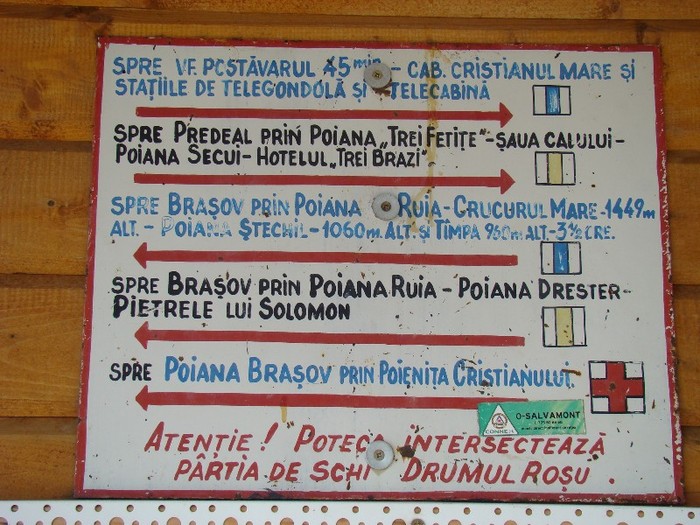 SPRE VF. POSTĂVARUL 45 min - CAB. CRISTIANUL MARE ȘI
STAȚIILE DE TELEGONDOLĂ ȘI TELECABINĂ
SPRE PREDEAL PRIN POIANA „TREI FETIȚE"-ȘAUA CALULUI-
POIANA SECUI- HOTELUL „TREI BRAZI"
SPRE BRAȘOV PRIN POIANA RUIA - CRUCURUL MARE-1449m
ALT. - POIANA ȘTECHIL- 1060m. ALT. ȘI TÎMPA 960m ALT-3 ½ ORE.
SPRE BRAȘOV PRIN POIANA RUIA - POIANA DRESTER-
PIETRELE LUI SOLOMON
SPRE POIANA BRAȘOV PRIN POIENIȚA CRISTIANULUI.
O-SALVAMONT
ATENȚIE! POTECA INTERSECTEAZĂ
PÂRTIA DE SCHI DRUMUL ROȘU.